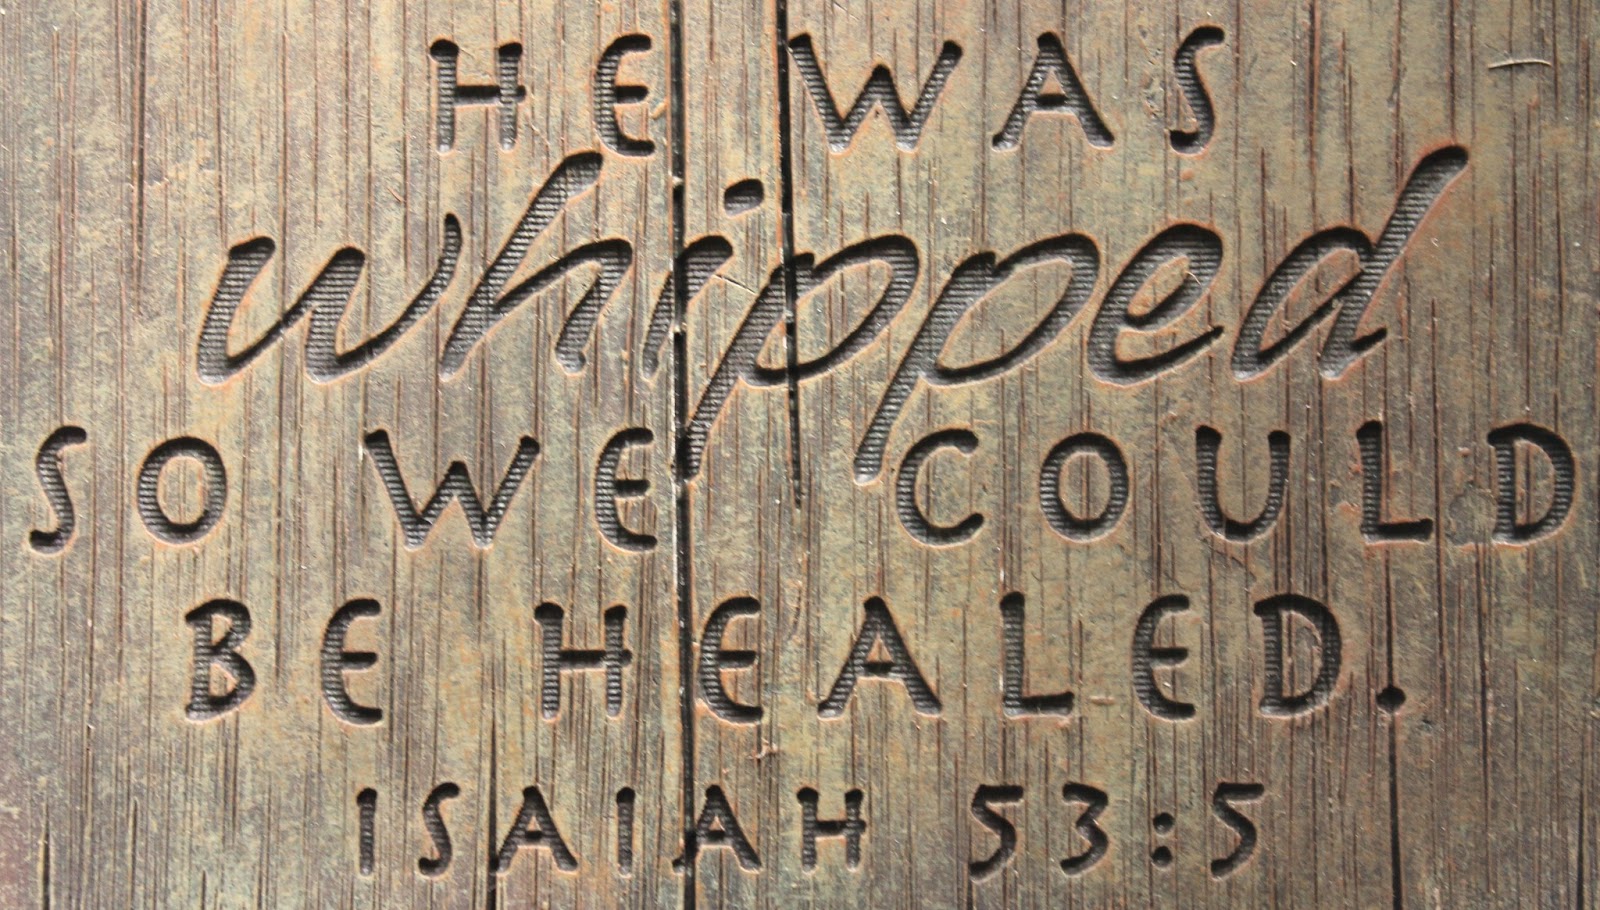 HE WAS
whipped
SO WE COULD
BE HEALED.
ISAIAH 53:5